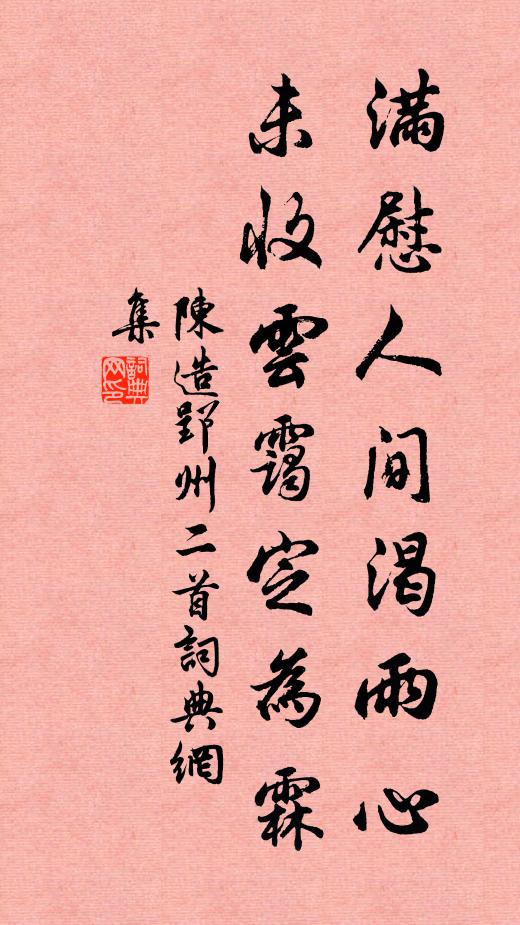 滿慰人間渴雨心
未收雲靄定為霖
陳造郢州二首詞典網
集
詞典
网印